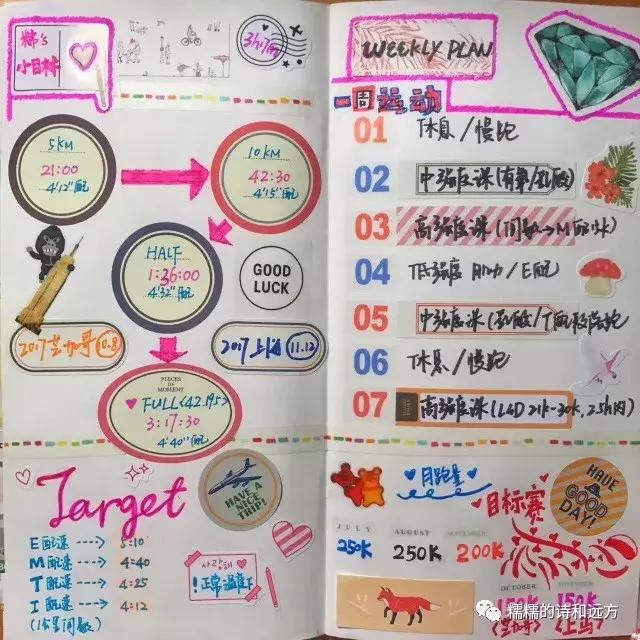 糯's
小目标
5KM
21:00
4'12"配
10KM
42:30
4'15"配
HALF
1:36:00
4'32"配
GOOD
LUCK
2017芝加哥10.8
2017上海11.12
PIECES
OF
MOMENT
FULL(42.195)
3:17:30
4'40"配
Target
HAVE A
NICE
TRIP!
E配速 ---> 5:10
M配速 ---> 4:40
T配速 ---> 4:25
I配速 ---> 4:12
사랑해
!正常温度下
WEEKLY PLAN
一周运动
01 休息/慢跑
02 中强度课(有氧/乳酸)
03 高强度课(间歇
04 低强度 /E配
05 中强度课(乳酸/T配
06 休息/慢跑
07 高强度课(LSD 21k-30k, 2.5h内)
月跑量
目标赛
HAVE
A
GOOD
DAY!
JULY
250K
AUGUST
250K
SEPTEMBER
200K
OCTOBER
150K
(芝加哥)
NOVEMBER
150K
(上马)
糯糯的诗和远方